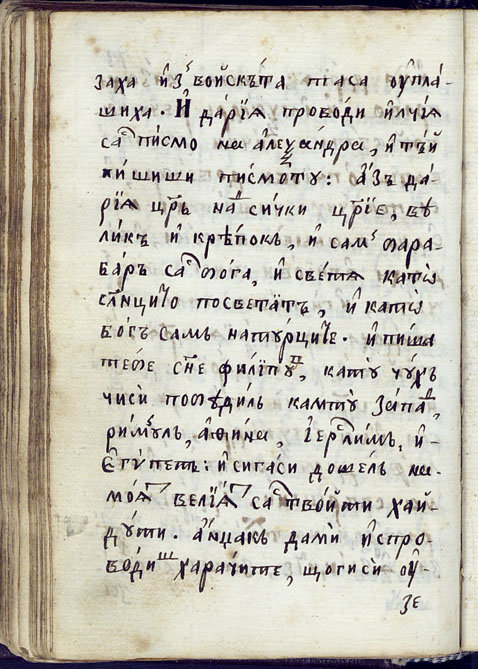 заха и҆зꙿ войскѣта таса ᲂу҆пла-
шиха · И҆ да́рїѧ проводи и҆лчїѧ
саⷭ҇ писмо на а҆леѯандра, и҆ тꙋй
пишиши писмотꙋ: а҆зъ да-
рїѧ црⷭ҇ь наⷣ си́чки црⷭ҇їе, ве-
ли́къ и҆ крѣпокъ, и҆ самꙿ фара-
ба́ръ саⷭ҇ бога, и҆ све́тѧ катѡ
слⷩ҇ициⷮѡ посветатъ, и҆ катѡ
богъ самъ натꙋрциⷮе · и҆ пиша
тебе сн҃е фили́пꙋⷡ, катꙋ чꙋхъ
чиси побѣдилъ камтꙋ запаⷣ,
ри́мꙋлъ, а҆ѳи́на, і҆ерⷭ҇лимъ, и҆-
є҆гꙋпетъ: и҆ сигаси дошелъ на-
моѧⷮ велїѧⷮ саⷭ҇ твойти хай-
дꙋти · а҆нцакъ дами и҆спро-
во́диⷲ҇ хара́чите, щогиси ᲂу҆-
зе